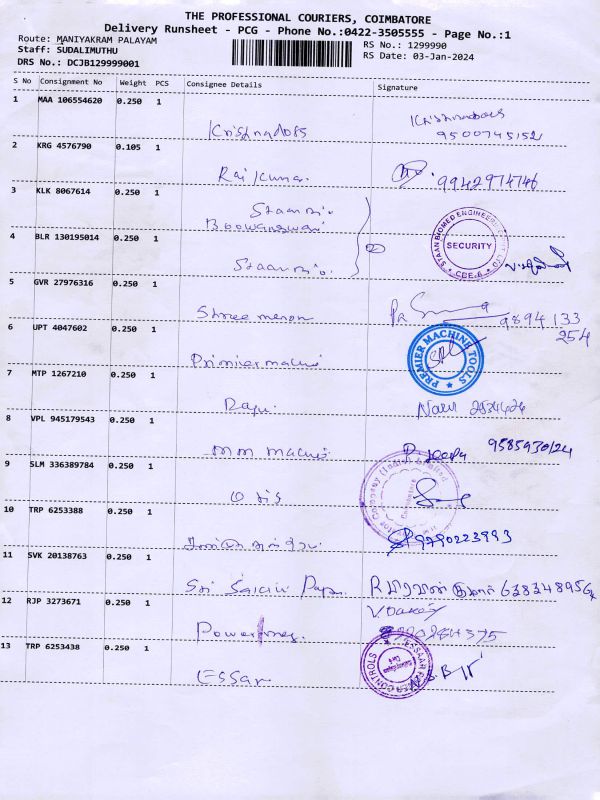 THE PROFESSIONAL COURIERS, COIMBATORE
Delivery Runsheet - PCG - Phone No.:0422-3505555 - Page No.:1
Route: MANIYAKRAM PALAYAM
RS No.: 1299990
Staff: SUDALIMUTHU
RS Date: 03-Jan-2024
DRS No.: DCJB129999001
S No Consignment No Weight PCS Consignee Details Signature
1 MAA 106554620 0.250 1
Krishnadoss Krishnadoss
9500745152
2 KRG 4576790 0.105 1
Raj Kumar 9942974746
3 KLK 8067614 0.250 1
4 BLR 130195014 0.250 1
STAAN BIOMED ENGINEERING
SECURITY
CBE-6
5 GVR 27976316 0.250 1
Shree menon 9894133
254
6 UPT 4047602 0.250 1
Primier machi
PREMIER MACHINE TOOLS
7 MTP 1267210 0.250 1
Raju
8 VPL 945179543 0.250 1
mm machi 9585930124
9 SLM 336389784 0.250 1
Otis
10 TRP 6253388 0.250 1
9790223993
11 SVK 20138763 0.250 1
Sri
12 RJP 3273671 0.250 1
13 TRP 6253438 0.250 1
Essar
ESSAAR POWER CONTROLS